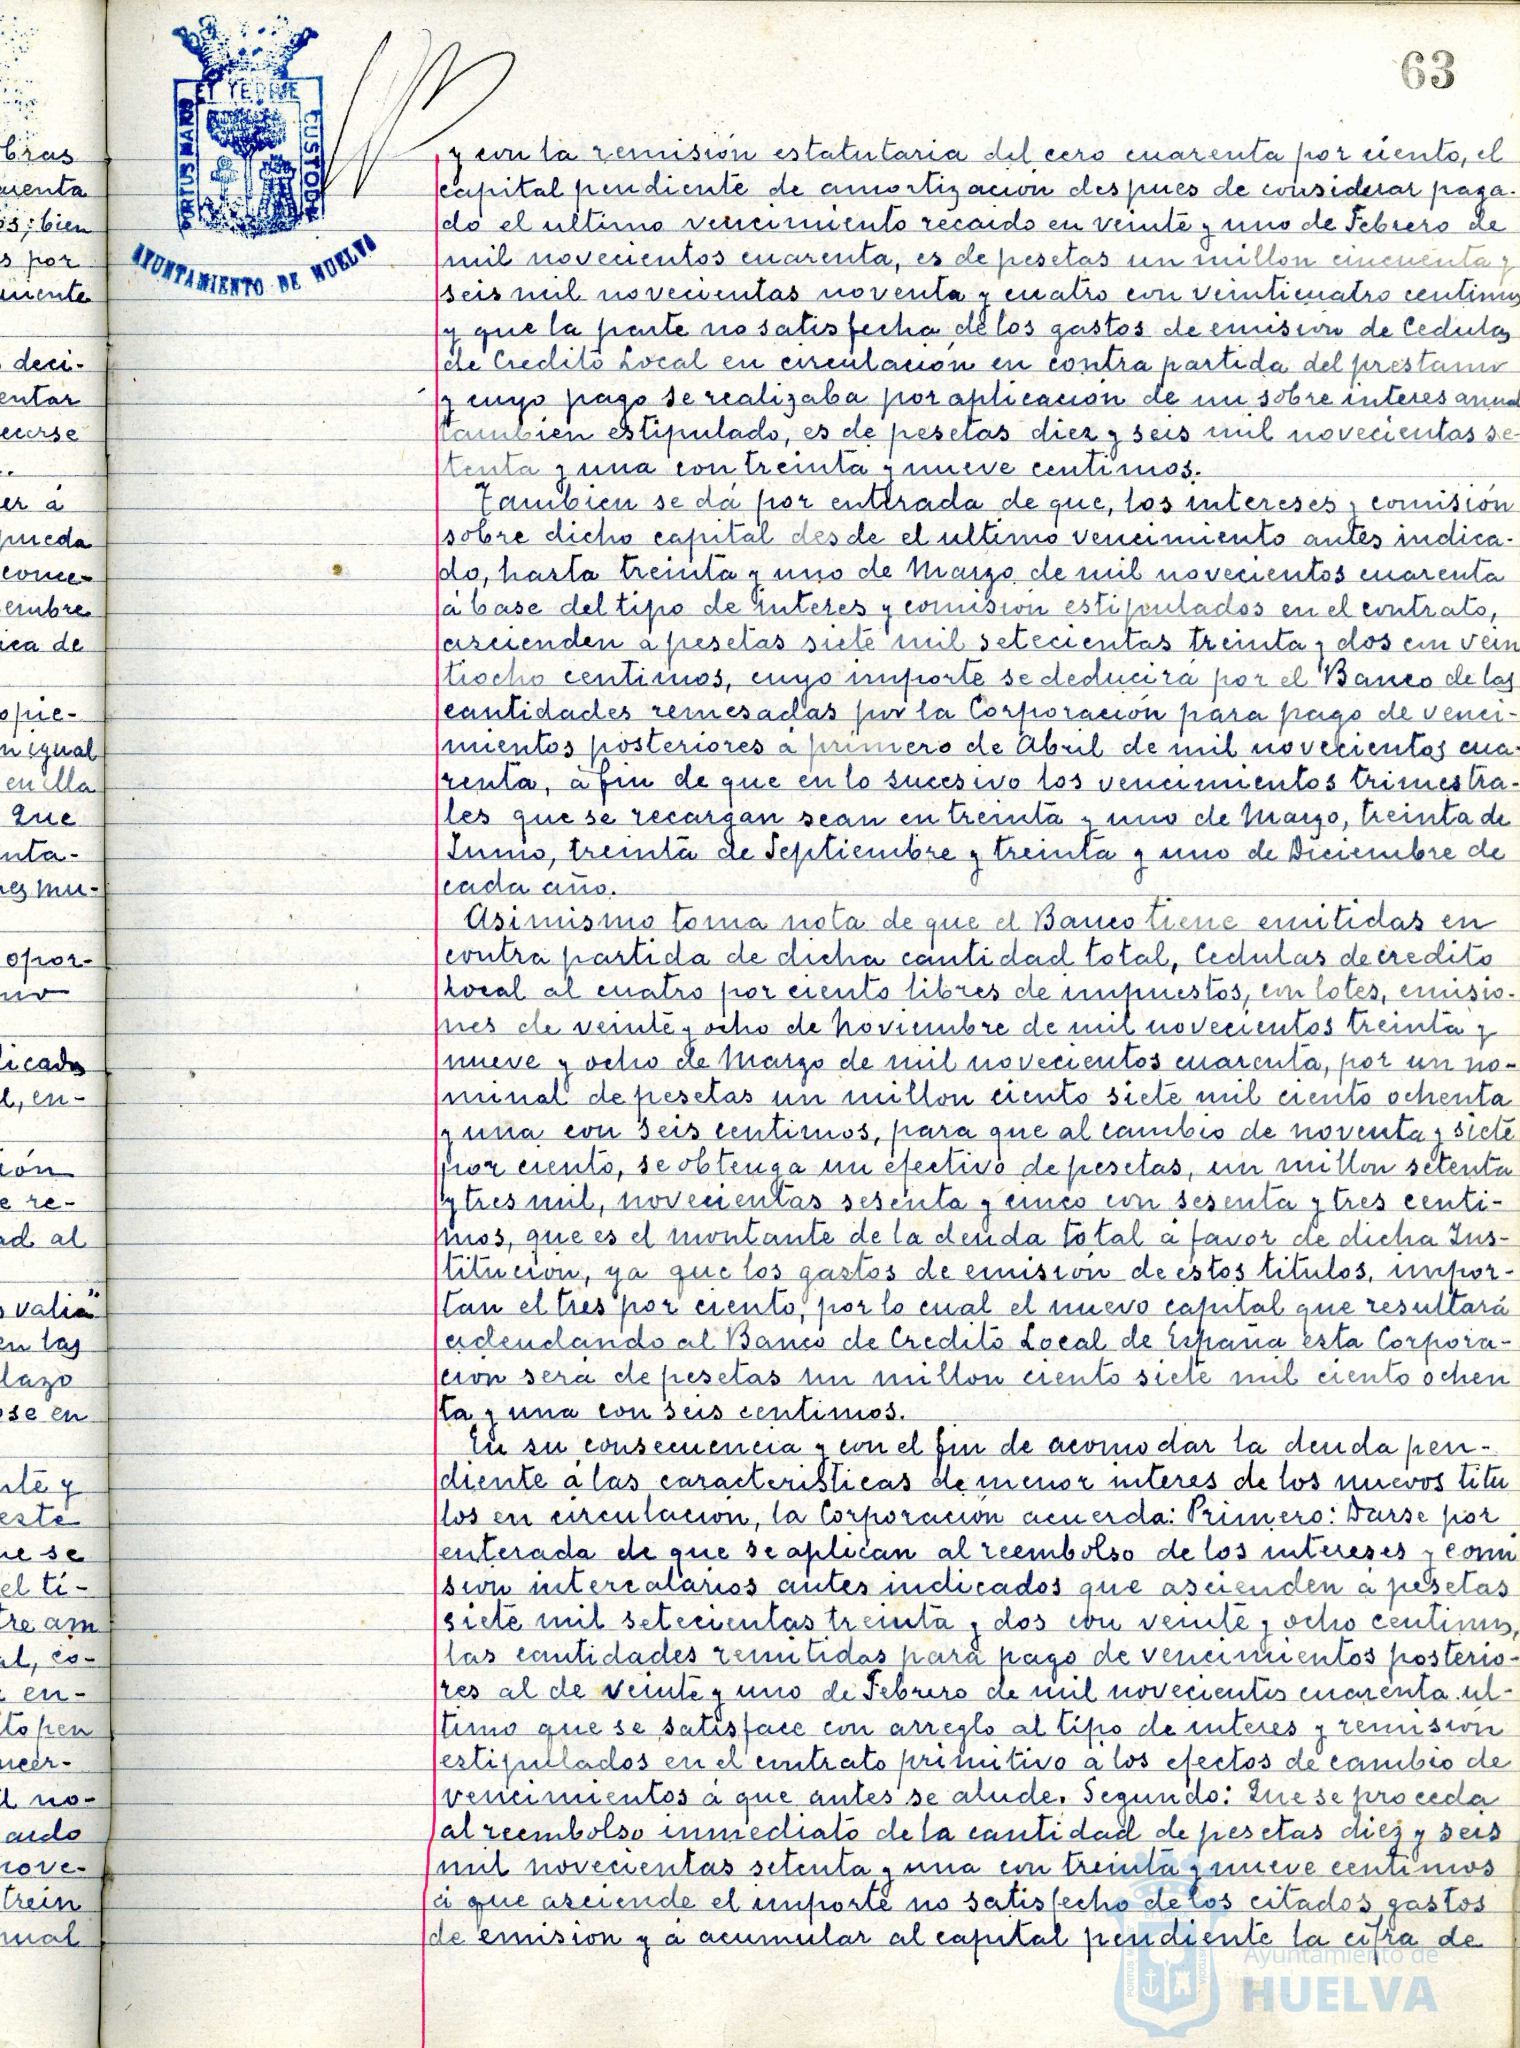 63
PORTUS MARIS ET TERRAE CUSTODIA
AYUNTAMIENTO DE HUELVA
y con la remisión estatutaria del cero cuarenta por ciento, el
capital pendiente de amortización despues de considerar paga-
do el ultimo vencimiento recaido en veinte y uno de Febrero de
mil novecientos cuarenta, es de pesetas un millon cincuenta y
seis mil novecientas noventa y cuatro con veinticuatro centimos
y que la parte no satisfecha de los gastos de emisión de Cedulas
de Credito Local en circulación en contra partida del prestamo
y cuyo pago se realizaba por aplicación de un sobre interes anual
tambien estipulado, es de pesetas diez y seis mil novecientas se-
tenta y una con treinta y nueve centimos.
Tambien se dá por enterada de que, los intereses y comisión
sobre dicho capital desde el ultimo vencimiento antes indica-
do, hasta treinta y uno de Marzo de mil novecientos cuarenta
á base del tipo de interes y comisión estipulados en el contrato,
ascienden a pesetas siete mil setecientas treinta y dos con vein
tiocho centimos, cuyo importe se deducirá por el Banco de las
cantidades remesadas por la Corporación para pago de venci-
mientos posteriores á primero de Abril de mil novecientos cua-
renta, á fin de que en lo sucesivo los vencimientos trimestra-
les que se recargan sean en treinta y uno de Marzo, treinta de
Junio, treinta de Septiembre y treinta y uno de Diciembre de
cada año.
Asimismo toma nota de que el Banco tiene emitidas en
contra partida de dicha cantidad total, Cedulas de credito
Local al cuatro por ciento libres de impuestos, con lotes, emisio-
nes de veinte y ocho de Noviembre de mil novecientos treinta y
nueve y ocho de Marzo de mil novecientos cuarenta, por un no-
minal de pesetas un millon ciento siete mil ciento ochenta
y una con seis centimos, para que al cambio de noventa y siete
por ciento, se obtenga un efectivo de pesetas, un millon setenta
y tres mil, novecientas sesenta y cinco con sesenta y tres centi-
mos, que es el montante de la deuda total á favor de dicha Ins-
titución, ya que los gastos de emisión de estos titulos, impor-
tan el tres por ciento, por lo cual el nuevo capital que resultará
adeudando al Banco de Credito Local de España esta Corpora-
ción será de pesetas un millon ciento siete mil ciento ochen
ta y una con seis centimos.
En su consecuencia y con el fin de acomodar la deuda pen-
diente á las caracteristicas de menor interes de los nuevos titu
los en circulación, la Corporación acuerda: Primero: Darse por
enterada de que se aplican al reembolso de los intereses y comi
sion intercalarios antes indicados que ascienden a pesetas
siete mil setecientas treinta y dos con veinte y ocho centimos,
las cantidades remitidas para pago de vencimientos posterio-
res al de veinte y uno de Febrero de mil novecientos cuarenta ul-
timo que se satisface con arreglo al tipo de interes y remisión
estipulados en el contrato primitivo a los efectos de cambio de
vencimientos á que antes se alude. Segundo: Que se proceda
al reembolso inmediato de la cantidad de pesetas diez y seis
mil novecientas setenta y una con treinta y nueve centimos
á que asciende el importe no satisfecho de los citados gastos
de emisión y á acumular al capital pendiente la cifra de
Ayuntamiento de
HUELVA